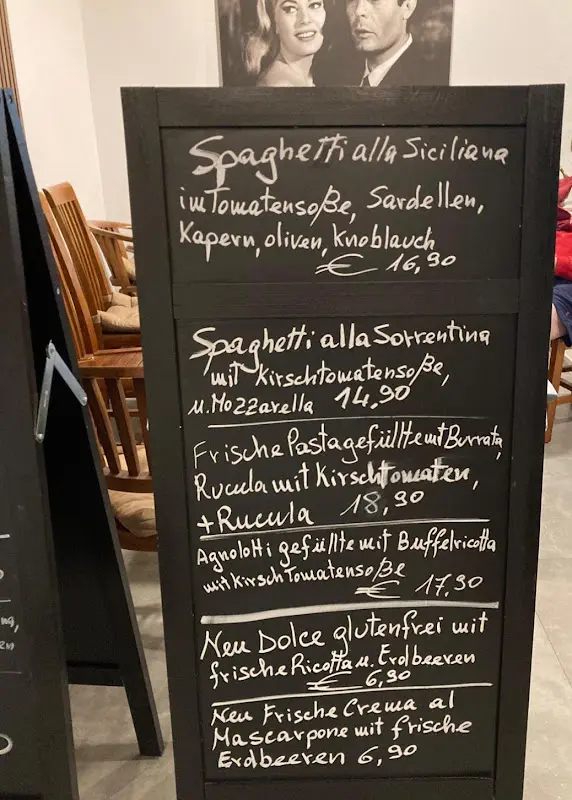 Spaghetti alla Siciliana
im Tomatensoße, Sardellen,
Kapern, oliven, Knoblauch
€ 16,90
Spaghetti alla Sorrentina
mit Kirschtomatensoße,
u. Mozzarella 14,90
Frische Pasta gefüllte mit Burrata,
Rucula mit Kirschtomaten,
+ Rucula 18,90
Agnolotti gefüllte mit Buffelricotta
mit Kirsch Tomatensoße
€ 17,90
Neu Dolce glutenfrei mit
frische Ricotta u. Erdbeeren
€ 6,90
Neu Frische Crema al
Mascarpone mit frische
Erdbeeren 6,90